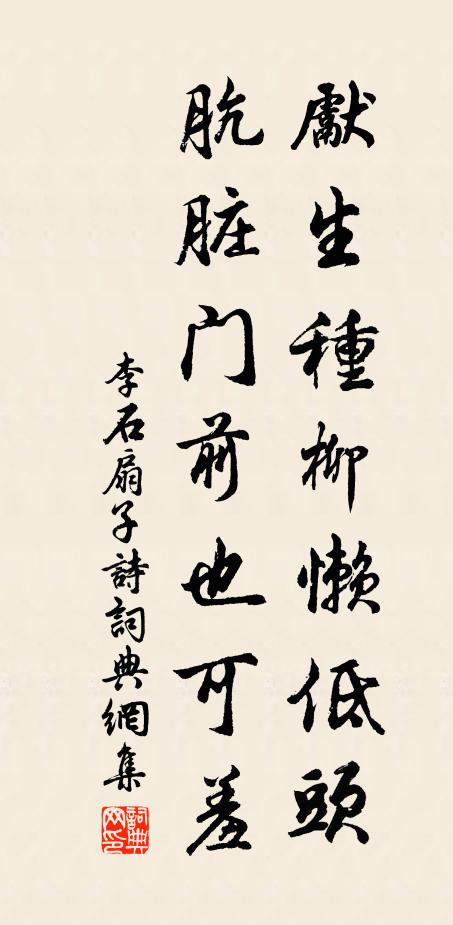 獻生種柳懶低頭
肮脏门前也可羞
李石扇子詩詞典網集
詞典网印